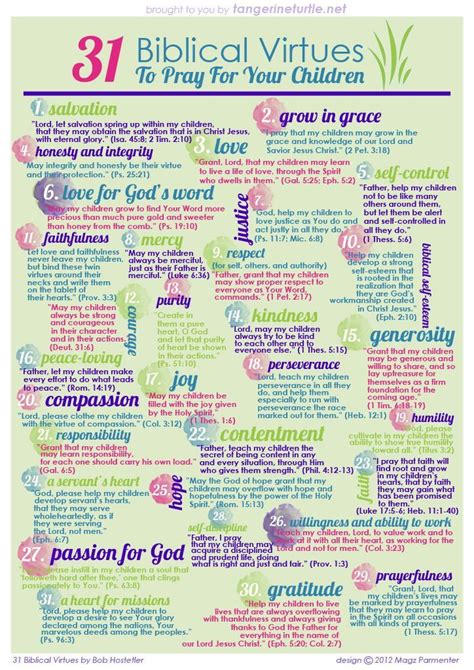 brought to you by tangerineturtle.net
31 Biblical Virtues
To Pray For Your Children
1. salvation
"Lord, let salvation spring up within my children,
that they may obtain the salvation that is in Christ Jesus,
with eternal glory." (Isa. 45:8; 2 Tim. 2:10)
2. grow in grace
"I pray that my children may grow in the
grace and knowledge of our Lord and
Savior Jesus Christ." (2 Pet. 3:18)
3. love
"Grant, Lord, that my children may learn
to live a life of love, through the Spirit
who dwells in them." (Gal. 5:25; Eph. 5:2)
4. honesty and integrity
"May integrity and honesty be their virtue
and their protection." (Ps. 25:21)
5. self-control
"Father, help my children
not to be like many
others around them,
but let them be alert
and self-controlled in
all they do."
(1 Thess. 5:6)
6. love for God's word
"May my children grow to find Your Word more
precious than much pure gold and sweeter
than honey from the comb." (Ps. 19:10)
justice
"God, help my children to
love justice as You do and
act justly in all they do."
(Ps. 11:7; Mic. 6:8)
8. mercy
"May my children
always be merciful,
just as their Father is
merciful." (Luke 6:36)
9. respect
(for self, others, and authority)
"Father, grant that my children
may show proper respect to
everyone as Your Word
commands." (1 Pet. 2:17)
10.
biblical self-esteem
"Help my children
develop a strong
self-esteem that
is rooted in the
realization that
they are God's
workmanship created
in Christ Jesus."
(Eph. 2:10)
11. faithfulness
"Let love and faithfulness
never leave my children,
but bind these twin
virtues around their
necks and write them
on the tablet of
their hearts." (Prov. 3:3)
12.
courage
"May my children
always be strong
and courageous
in their character
and in their actions."
(Deut. 31:6)
13. purity
"Create in
them a pure
heart, O God
and let that purity
of heart be shown
in their actions."
(Ps. 51:10)
14. kindness
"Lord, may my children
always try to be kind
to each other and to
everyone else." (1 Thes. 5:15)
15. generosity
"Grant that my children
may be generous and
willing to share, and so
lay up treasure for
themselves as a firm
foundation for the
coming age."
(1 Tim. 6:18-19)
16. peace-loving
"Father, let my children make
every effort to do what leads
to peace." (Rom. 14:19)
17. joy
"May my children be
filled with the joy given
by the Holy Spirit."
(1 Thes. 1:6)
18. perseverance
"Lord, teach my children
perseverance in all they
do, and help them
especially to run with
perseverance the race
marked out for them."
(Heb. 12:1)
19. humility
"God, please
cultivate in my children
the ability to show true humility
toward all." (Titus 3:2)
20. compassion
"Lord, please clothe my children
with the virtue of compassion." (Col. 3:12)
21. responsibility
"Grant that my children may learn responsibility,
for each one should carry his own load."
(Gal. 6:5)
22. contentment
"Father, teach my children the
secret of being content in any
and every situation, through Him
who gives them strength." (Phil. 4:12-13)
23.
faith
"I pray that faith will
find root and grow
in my children's
hearts, that by faith
they may gain what
has been promised
to them."
(Luke 17:5-6; Heb. 11:1-40)
24. a servant's heart
"God, please help my children
develop servant's hearts,
that they may serve
wholeheartedly, as if
they were serving
the Lord, not men."
(Eph. 6:7)
25.
hope
"May the God of hope grant that my
children may overflow with hope and
hopefulness by the power of the Holy
Spirit." (Rom. 15:13)
26. willingness and ability to work
"Teach my children, Lord, to value work and to
work at it with all their heart, as working for the
Lord and not for men." (Col. 3:23)
27. passion for God
"Lord, please instill in my children a soul that
'followeth hard after thee,' one that clings
passionately to You." (Ps. 63:8)
28. self-discipline
"Father, I pray that
my children may
acquire a disciplined
and prudent life, doing
what is right and just and fair." (Prov. 1:3)
29. prayerfulness
"Grant, Lord, that my
children's lives may be
marked by prayerfulness
that they may learn to pray
in the Spirit on all occasions
with all kinds of prayers
and requests." (Eph. 6:18)
30. gratitude
"Lord, help my children to live lives
that are always overflowing with
thankfulness and always giving
thanks to God the Father for
everything, in the name of our
Lord Jesus Christ." (Eph. 5:20; Col. 2:7)
31. a heart for missions
"Lord, please help my children to
develop a desire to see Your glory
declared among the nations, Your
marvelous deeds among
all peoples." (Ps. 96:3)
31 Biblical Virtues by Bob Hostetler
Design © 2012 Magz Parmenter